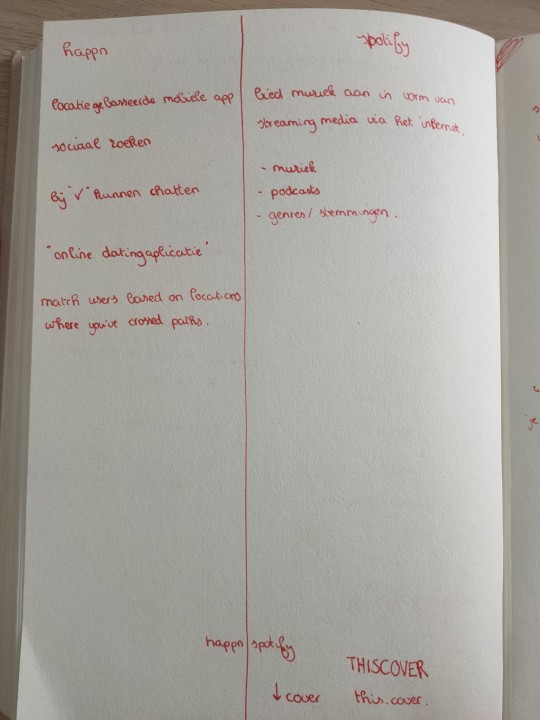 happn
locatiegebasseerde mobiele app
sociaal zoeken
bij "✓" kunnen chatten
"online datingaplicatie"
match users based on locations
where you've crossed paths.
spotify
bied muziek aan in vorm van
streaming media via het internet.
- muziek
- podcasts
- genres / stemmingen.
happn | spotify
THISCOVER
↓ cover this.cover.
je